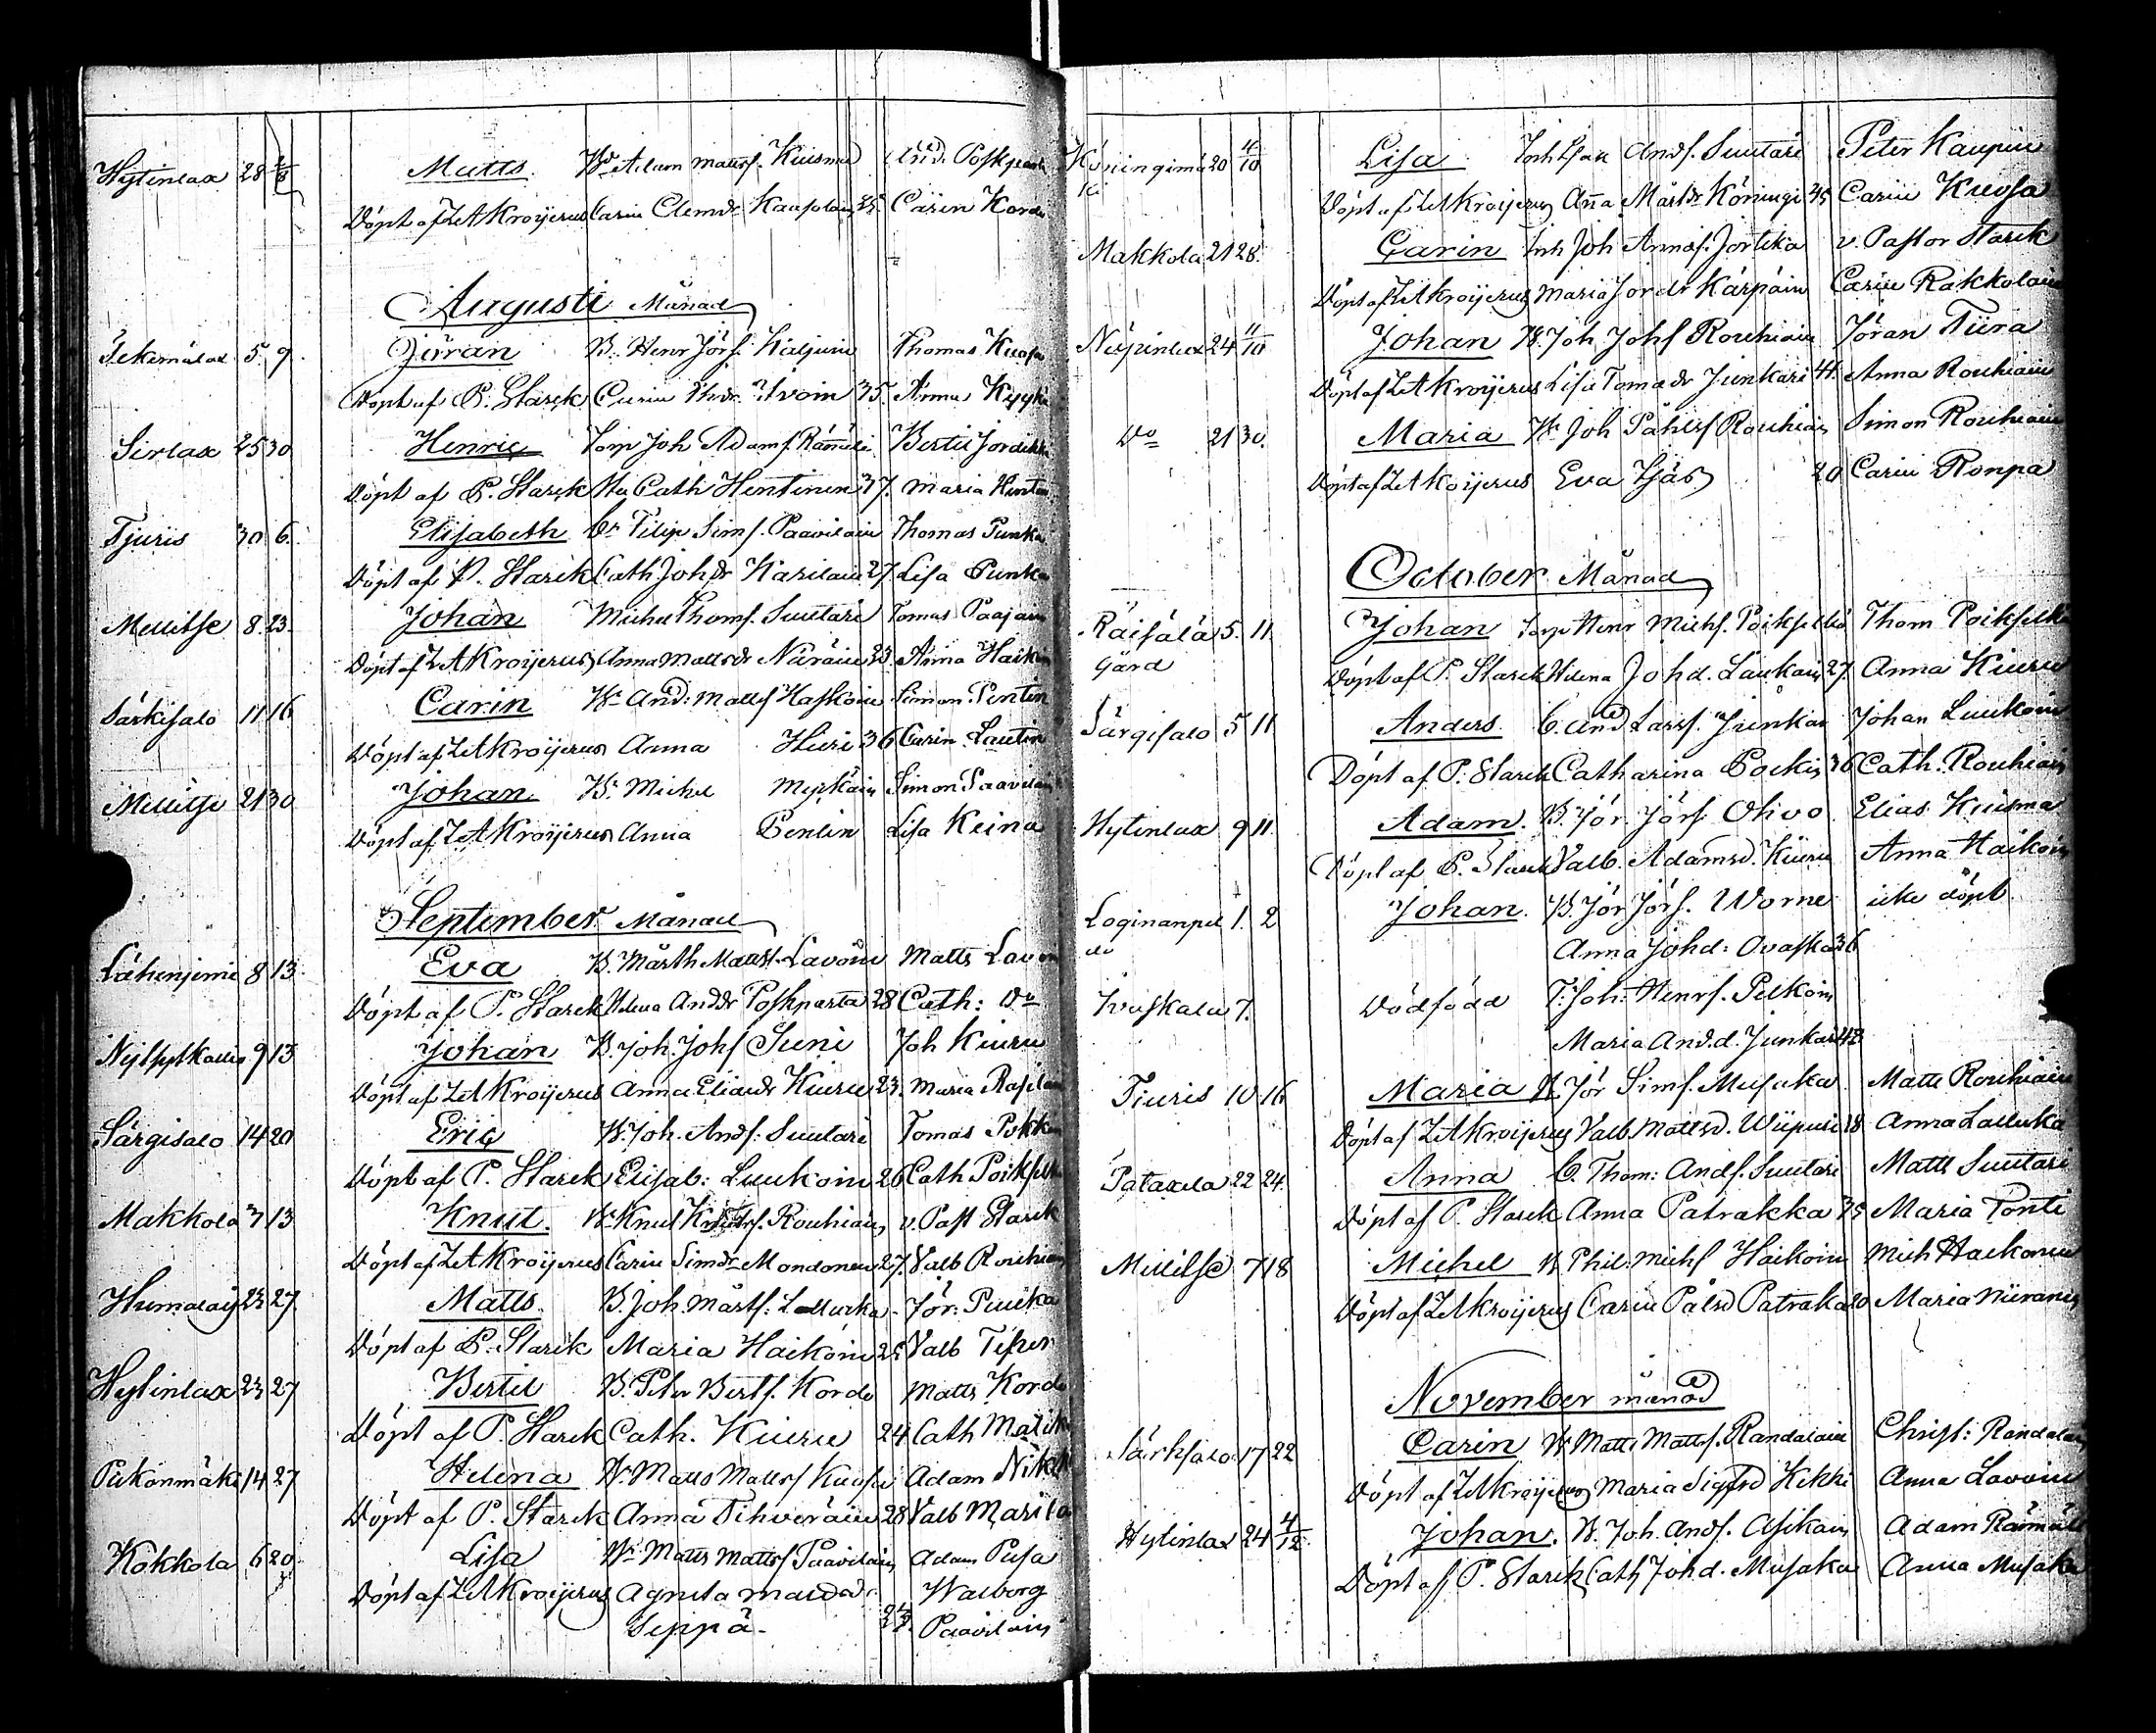 Hytinlax 28 2/8 Matts. Bd Adam Mattsf. Kuisma And. Poskparta
Döpt af Z A Kroijerus Carin Clemdr Kaupolain 35. Carin Kordo
Augusti Månad
5. 9. Jöran B. Henr Jörf. Kaljuin Thomas Kuosa
Döpt af P. Starck Carin Thdr. Ivoin 35. Anna Kyyhi
Sirlax 25 30 Henric Torp Joh Adamf. Rämäli Bertil Jordikki
Döpt af P. Starck Hu Cath Hentinen 37. Maria Hentin
Tjuris 30 6. Elisabeth Filip Simf. Paavilain Thomas Punka
Döpt af P. Starck Cath Johdr Karilain 27. Lisa Punka
Mellitse 8. 23. Johan Michel Thomf. Suutari Tomas Paajain
Döpt af Z A Kroijerus Anna Mattsdr Näräin 23. Anna Haikoin
Särkisalo 11 16 Carin Bd And. Mattsf Haikoin Simon Pentin
Döpt af Z A Kroijerus Anna Hieri 36 Carin Lautin
Mellitse 21 30 Johan Bd Michel Mejkäin Simon Paavilain
Döpt af Z A Kroijerus Anna Pentin Lisa Keina
September Månad
Lähenjemi 8 13. Eva B. Märth Mattsf. Lavoin Matts Lavoin
Döpt af P. Starck Helena Anddr Poskparta 28 Cath: Do
9 13 Johan B. Joh. Johf Suni Joh Kiuru
Döpt af Z A Kroijerus Anna Eliaedr Kiuru 23. Maria Rasilain
Särgisalo 14 20 Eric B. Joh. Andf. Suutari Tomas Pokkin
Döpt af P. Starck Elisab: Luukoin 26 Cath Poikselkä
Makkola 7 13 Knut. Bd Knut Knutsf. Rouhiain v. Past Starck
Döpt af Z A Kroijerus Carin Simdr Mondonen 27. Valb Rouhiain
23 27 Matts. B. Joh. Märtf. Lallucka Jör: Puuka
Döpt af P. Starck Maria Haikoin 25 Valb
Hytinlax 23 27 Bertil B. Peter Bertf. Kordo Matts Kordo
Döpt af P. Starck Cath. Kiuru 24 Cath
Pukinmäki 14 27 Helena Bd Matts Mattsf Kuosa Adam
Döpt af P. Starck Anna Tihveräin 28 Valb Marila
Kokkola 6 20. Lisa Bd Matts Mattsf Paavilain Adam Pusa
Döpt af Z A Kroijerus Agneta Walborg
Seppä. 27. Paavilain
Köningimä 20 4/10 Lisa Inh Isak Andf. Suutari Peter Kaupin
ki Döpt af Z A Kroijerus Anna Märtdr Köningi 45 Carin Kuosa
Makkola 21 28. Carin Inh Joh Annasf. Jortika v. Pastor Starck
Döpt af Z A Kroijerus Maria Jordr Kärpäin Carin Rakkolain
24 11/10 Johan B. Joh Johf Rouhiain Jöran Tiira
Döpt af Z A Kroijerus Lisa Tomadr Junkari 41. Anna Rouhiain
Do 21 30. Maria Bd Joh Påhlsf Rouhiain Simon Rouhiain
Döpt af Z A Kroijerus Eva Tjäs 20 Carin Ronpa
October Månad
Räisälä 5. 11. Johan Torp Henr Michf. Poikselkä Thom Poikselkä
gård Döpt af P. Starck Helena Johd. Laukain 27 Anna Kiuru
Särgisalo 5 11 Anders. B. And Larsf. Junkar Johan Luukoin
Döpt af P. Starck Catharina Pockis 36 Cath. Rouhiain
Hytinlax 9 11. Adam. B. Jör. Jörf. Ohvo Elias Kuisma
Döpt af P. Starck Valb. Adamsd. Kiuru Anna Haikoin
1. 2 Johan. B. Jör Jörf. Worne icke döpt
Anna Johd: Ovaska 36
Ivaskala 7. Dödfödd T. Joh. Henrf. Pelkoin
Maria And.d. Junkar 43
Tiuris 10 16 Maria B. Jör Simf. Musaka Matts Rouhiain
Döpt af Z A Kroijerus Valb. Mattsd. Wiipuri 18 Anna Lallucka
22 24. Anna B. Thom: Andf. Suutari Matts Suutari
Döpt af P. Starck Anna Patrakka 35 Maria Ponti
Mellitse 7 18 Michel B. Phil. Michf Haikoin Mich Haikonen
Döpt af Z A Kroijerus Carin Pålsd Patraka 20 Maria Niiranen
November månad
Särkisalo 17 22 Carin Bd Matts Mattsf. Randalain Christ: Randalain
Döpt af Z A Kroijerus Maria Sigfrd Hikki Anna Lavoin
Hytinlax 24 4/12. Johan. B. Joh. Andf. Asikain Adam Rämäli
Döpt af P. Starck Cath Johd. Musaka Anna Musaka